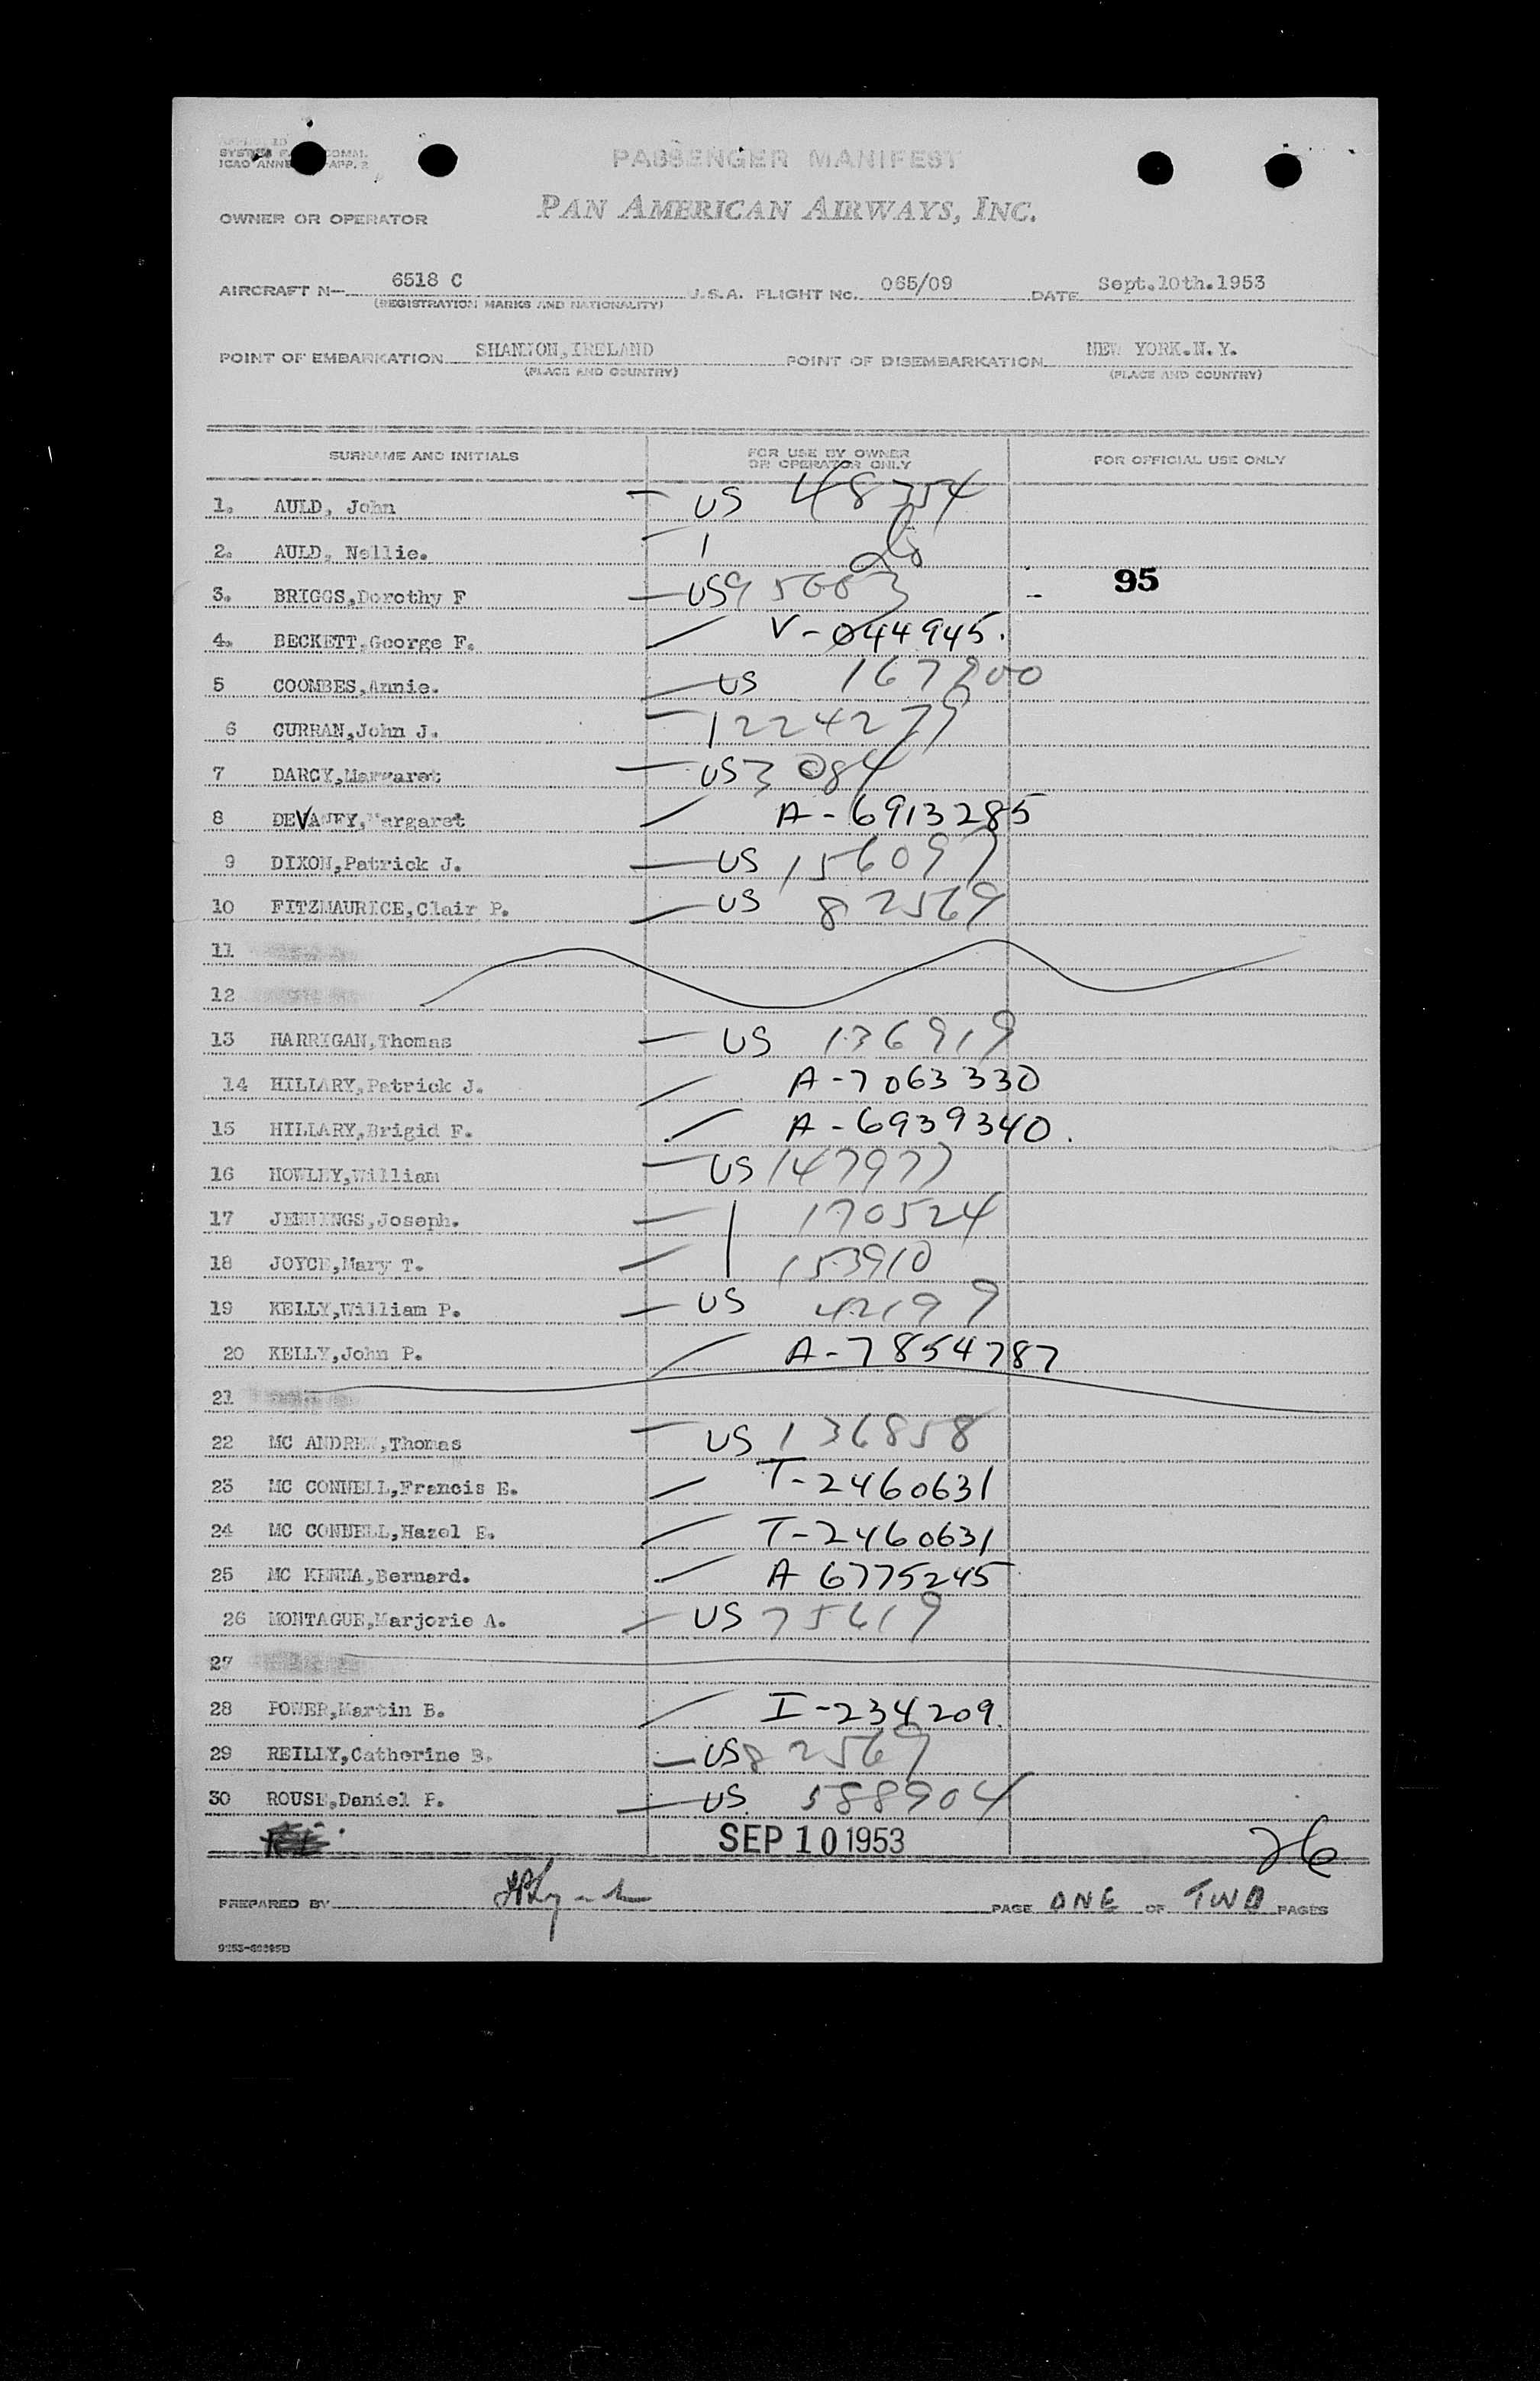 SYSTEM COMM.
ICAO ANNE APP. 2
PASSENGER MANIFEST
PAN AMERICAN AIRWAYS, INC.
OWNER OR OPERATOR
AIRCRAFT N— 6518 C U.S.A. FLIGHT NO. 065/09 DATE Sept.10th.1953
(REGISTRATION MARKS AND NATIONALITY)
POINT OF EMBARKATION SHANNON,IRELAND POINT OF DISEMBARKATION NEW YORK.N.Y.
(PLACE AND COUNTRY) (PLACE AND COUNTRY)
SURNAME AND INITIALS FOR USE BY OWNER OR OPERATOR ONLY FOR OFFICIAL USE ONLY
1. AULD, John — US 48754
2. AULD, Nellie. —
3. BRIGGS,Dorothy F — US 95663 - 95
4. BECKETT,George F. V-044945.
5 COOMBES,Annie. — US 167900
6 CURRAN,John J. — 1224277
7 DARCY,Margaret — US 3084
8 DEVANEY,Margaret A-6913285
9 DIXON,Patrick J. — US 156097
10 FITZMAURICE,Clair P. — US 82569
11
12
13 HARRIGAN,Thomas — US 136919
14 HILLARY,Patrick J. A-7063330
15 HILLARY,Brigid F. A-6939340.
16 HOWLEY,William — US 147977
17 JENNINGS,Joseph. — 170524
18 JOYCE,Mary T. — 153910
19 KELLY,William P. — US 42199
20 KELLY,John P. A-7854787
21
22 MC ANDREW,Thomas — US 136858
23 MC CONNELL,Francis E. T-2460631
24 MC CONNELL,Hazel E. T-2460631
25 MC KENNA,Bernard. A 6775245
26 MONTAGUE,Marjorie A. — US 75619
27
28 POWER,Martin B. I-234209.
29 REILLY,Catherine B. — US 82569
30 ROUSE,Daniel P. — US 588904
SEP 10 1953
26
PREPARED BY PAGE ONE OF TWO PAGES